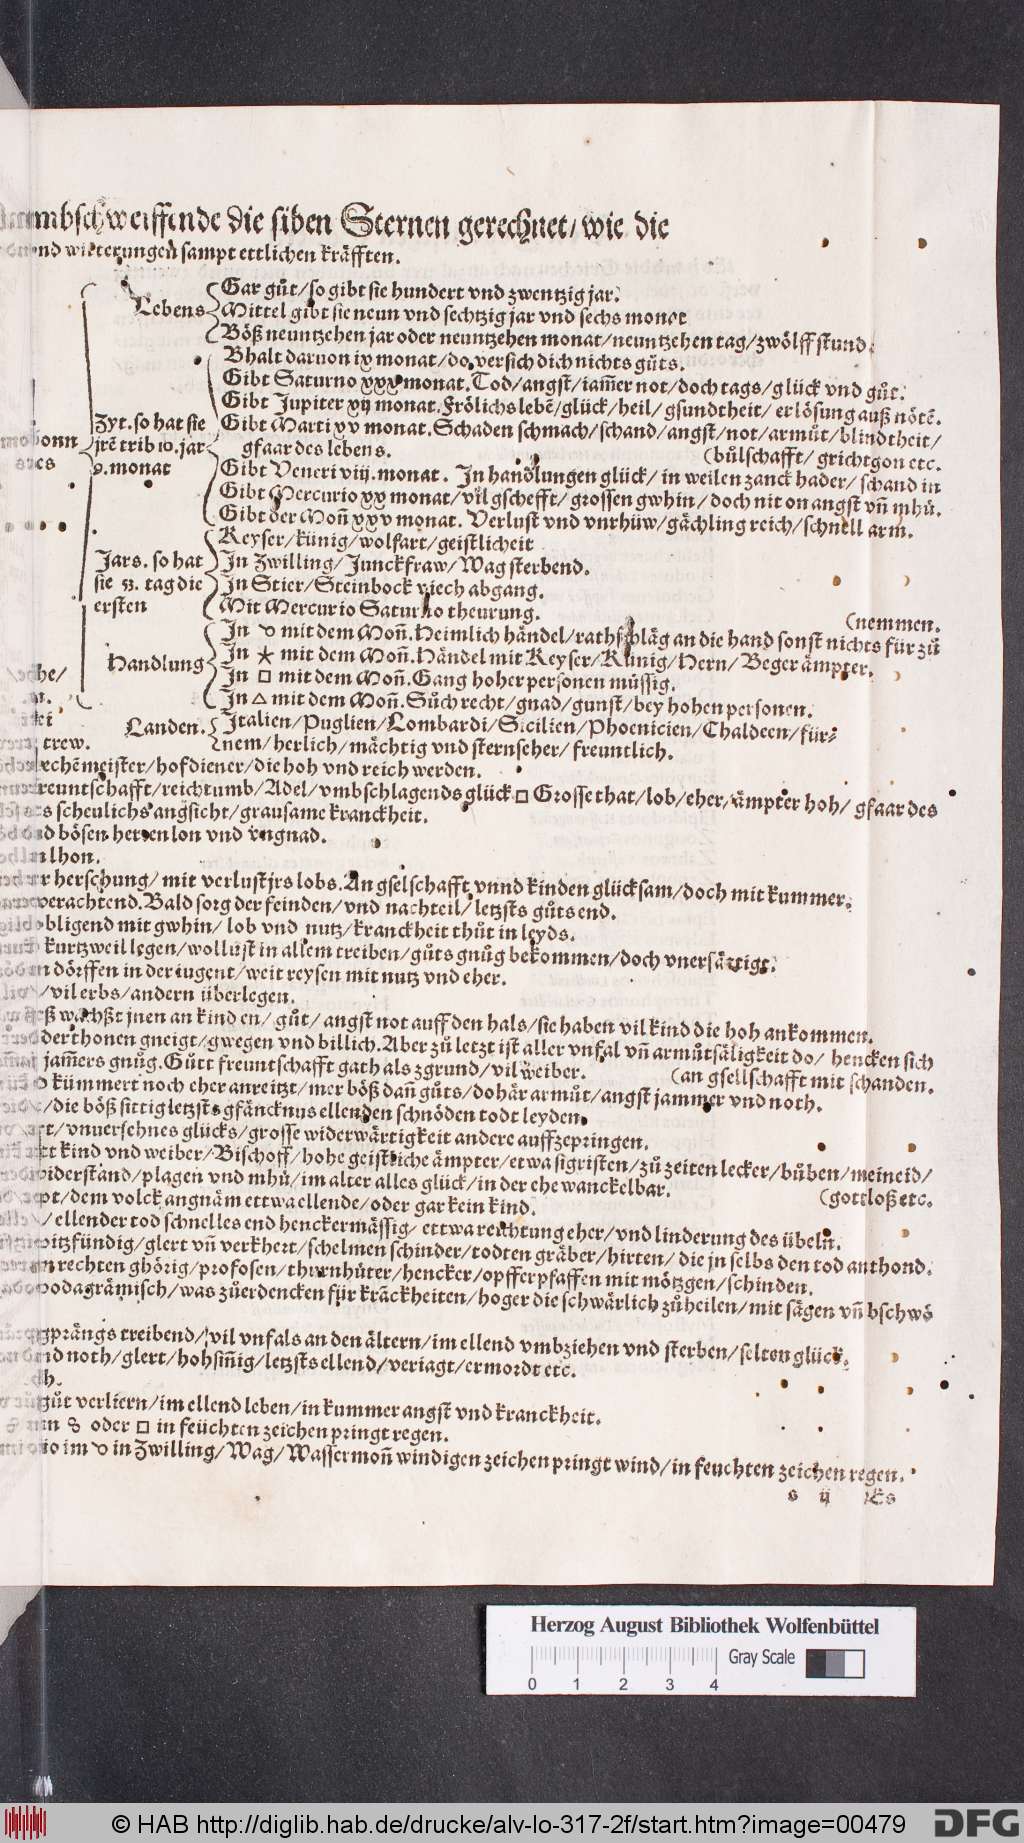 vmbschweiffende die siben Sternen gerechnet/ wie die
vnd witterungen sampt ettlichen kräfften.
Lebens
Gar gůt/ so gibt sie hundert vnd zwentzig jar.
Mittel gibt sie neun vnd sechtzig jar vnd sechs monat
Böß neuntzehen jar oder neuntzehen monat/ neuntzehen tag/ zwölff stund.
Zyt. so hat sie
jrē trib 10. jar
9. monat
Bhalt daruon ix monat/ do versich dich nichts gůts.
Gibt Saturno xxx monat. Tod/ angst/ iam̄er not/ doch tags/ glück vnd gůt.
Gibt Jupiter xij monat. Frölichs lebē/ glück/ heil/ gsundtheit/ erlösung auß nötē.
Gibt Marti xv monat. Schaden schmach/ schand/ angst/ not/ armůt/ blindtheit/
gfaar des lebens. (bůlschafft/ grichtgon etc.
Gibt Veneri viij. monat. In handlungen glück/ in weilen zanck hader/ schand in
Gibt Mercurio xx monat/ vil gschefft/ grossen gwhin/ doch nit on angst vn̄ mhů.
Gibt der Mon̄ xxv monat. Verlust vnd vnrhüw/ gächling reich/ schnell arm.
Jars. so hat
sie 53. tag die
ersten
Keyser/ künig/ wolfart/ geistlicheit
In Zwilling/ Junckfraw/ Wag sterbend.
In Stier/ Steinbock viech abgang.
Mit Mercurio Saturno theurung.
(nemmen.
Handlung
In ☌ mit dem Mon̄. Heimlich händel/ rathschläg an die hand sonst nichts für zů
In ⚹ mit dem Mon̄. Händel mit Keyser/ Künig/ Hern/ Beger ämpter.
In □ mit dem Mon̄. Gang hoher personen müssig.
In △ mit dem Mon̄. Sůch recht/ gnad/ gunst/ bey hohen personen.
Landen.
Italien/ Puglien/ Lombardi/ Sicilien/ Phoenicien/ Chaldeen/ für-
nem/ herlich/ mächtig vnd sternseher/ freuntlich.
trew.
rechēmeister/ hofdiener/ die hoh vnd reich werden.
freuntschafft/ reichtumb/ Adel/ vmbschlagends glück □ Grosse that/ lob/ eher/ ämpter hoh/ gfaar des
scheulichs angsicht/ grausame kranckheit.
bösen herren lon vnd vngnad.
lhon.
herschung/ mit verlust jrs lobs. An gselschafft vnnd kinden glücksam/ doch mit kummer.
verachtend. Bald sorg der feinden/ vnd nachteil/ letzsts gůts end.
obligend mit gwhin/ lob vnd nutz/ kranckheit thůt in leyds.
kurtzweil legen/ wollust in allem treiben/ gůts gnůg bekommen/ doch vnersättigt.
dörffen in der iugent/ weit reysen mit nutz vnd eher.
/ vil erbs/ andern überlegen.
wachßt jnen an kinden/ gůt/ angst not auff den hals/ sie haben vil kind die hoh ankommen.
der thonen gneigt/ gwegen vnd billich. Aber zů letzt ist aller vnfal vn̄ armůtsäligkeit do/ hencken sich
jam̄ers gnůg. Gůtt freuntschafft gath als zgrund/ vil weiber. (an gsellschafft mit schanden.
kümmert noch eher anreitzt/ mer böß dan̄ gůts/ do här armůt/ angst jammer vnd noth.
/ die böß sittig letzsts gfäncknus ellenden schnöden todt leyden.
/ vnuersehnes glücks/ grosse widerwärtigkeit andere auffzepringen.
kind vnd weiber/ Bischoff/ hohe geistliche ämpter/ etwa sigristen/ zů zeiten lecker/ bůben/ meineid/
widerstand/ plagen vnd mhů/ im alter alles glück/ in der ehe wanckelbar. (gottloß etc.
/ dem volck angnäm ettwa ellende/ oder gar kein kind.
/ ellender tod schnelles end henckermässig/ ettwa reichtung eher/ vnd linderung des übels.
spitzfündig/ glert vn̄ verkhert/ schelmen schinder/ todten gräber/ hirten/ die jn selbs den tod anthond.
rechten ghörig/ profosen/ thurnhůter/ hencker/ opfferpfaffen mit mötzgen/ schinden.
podagrämisch/ was zůerdencken für kräckheiten/ hoger die schwärlich zů heilen/ mit sägen vn̄ bschwö
gprängs treibend/ vil vnfals an den ältern/ im ellend vmbziehen vnd sterben/ selten glück.
vnd noth/ glert/ hohsin̄ig/ letzsts ellend/ veriagt/ ermordt etc.
gůt verliern/ im ellend leben/ in kummer angst vnd kranckheit.
oder □ in feüchten zeichen pringt regen.
im ☌ in Zwilling/ Wag/ Wassermon̄ windigen zeichen pringt wind/ in feuchten zeichen regen.
s ij Es
Herzog August Bibliothek Wolfenbüttel
0 1 2 3 4 Gray Scale
© HAB http://diglib.hab.de/drucke/alv-lo-317-2f/start.htm?image=00479 DFG